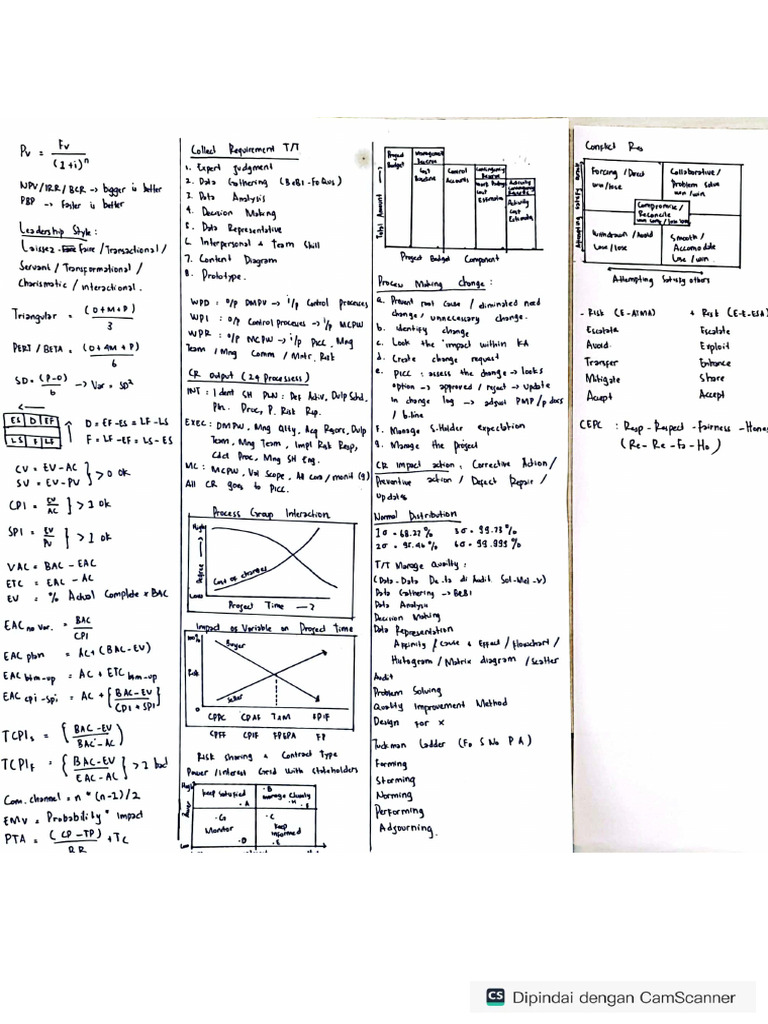 Pv = Fv
(1+i)^n
NPV/IRR/BCR → bigger is better
PBP → Faster is better
Leadership Style :
Laissez - Faire / Transactional /
Servant / Transformational /
Charismatic / interactional.
Triangular = (O+M+P)
3
PERT / BETA = (O+4M+P)
6
SD = (P-O) → Var = SD²
6
ES | D | EF D = EF-ES = LF-LS
LS | F | LF F = LF-EF = LS-ES
CV = EV-AC
SV = EV-PV } > 0 ok
CPI = EV
AC } > 1 ok
SPI = EV
PV } > 1 ok
VAC = BAC - EAC
ETC = EAC - AC
EV = % Actual Complete x BAC
EAC no var. = BAC
CPI
EAC plan = AC + (BAC-EV)
EAC btm-up = AC + ETC btm-up
EAC cpi-spi = AC + { BAC-EV }
CPI * SPI
TCPIs = { BAC-EV )
BAC-AC
TCPIF = { BAC-EV } > 1 bad
EAC-AC
Com. channel = n * (n-1)/2
EMV = Probability * Impact
PTA = (CP-TP) + Tc
RR
Collect Requirement T/T
1. Expert Judgment
2. Data Gathering (BeBI-FoQus)
3. Data Analysis
4. Decision Making
5. Data Representative
6. Interpersonal & Team Skill
7. Content Diagram
8. Prototype.
WPD : o/p DMPW → i/p Control processes
WPI : o/p Control processes → i/p MCPW
WPR : o/p MCPW → i/p PICC, Mng
Team / Mng Comm / Mntr. Risk
CR Output (24 Processess)
INT : Ident SH PLN : Def Activ, Dvlp Schd,
Pln. Proc, P. Risk Rsp.
EXEC : DMPW, Mng Qlty, Acq Rsorc, Dvlp
Team, Mng Team, Impl Risk Resp,
Cdct Proc, Mng SH Eng.
MC : MCPW, Val Scope, All Con/monit (9)
All CR goes to PICC.
Process Group Interaction
High
Degree
Cost of changes
Low
Project Time →
Impact os Variable on Project Time
100%
Buyer
Risk
Seller
0%
CPPC CPAF T&M FPIF
CPFF CPIF FPEPA FP
Risk sharing & Contract Type
Power / Interest Grid with stakeholders
High
Power
Keep Satisfied
. A
. B
Manage Closely
. H . F
. G
Monitor
. D
. C
Keep
Informed
. E
Low
Project
Budget
Management
Reserve
Cost
Baseline
Control
Accounts
Contingency
Reserve
Work Package
Cost
Estimates
Activity
Contingency
Reserve
Activity
Cost
Estimates
Total Amount
Project Budget Component
Process Making change :
a. Prevent root cause / eliminated need
change / unnecessary change.
b. identify change
c. Look the impact within KA
d. Create change request
e. PICC : assess the change → looks
option → approved / reject → update
in change log → adjust PMP/p docs
/ b.line
f. Manage S.Holder expectation
g. Manage the project
CR impact action : Corrective Action /
Preventive action / Defect Repair /
Updates
Normal Distribution
1σ = 68.27 % 3σ = 99.73 %
2σ = 95.46 % 6σ = 99.999 %
T/T Manage Quality :
(Data-Data De.ta di Audit Sol-Mel-x)
Data Gathering → BeBI
Data Analysis
Decision Making
Data Representation
Affinity / Cause & Effect / flowchart /
Histogram / Matrix diagram / scatter
Audit
Problem Solving
Quality Improvement Method
Design for X
Tuckman Ladder (Fo S No P A)
Forming
Storming
Norming
Performing
Adjourning.
Conflict Res
Attempting satisfy ourself
Forcing / Direct
win/lose
Collaborative /
Problem Solve
win/win
Compromise /
Reconcile
Withdrawn / Avoid
Lose / lose
Smooth /
Accomodate
Lose / win
Attempting Satisfy others
- Risk (E-ATMA) + Risk (E-E-ESA)
Escalate Escalate
Avoid Exploit
Transfer Enhance
Mitigate Share
Accept Accept
CEPC : Resp - Respect - Fairness - Hones
(Re - Re - Fa - Ho)
CS Dipindai dengan CamScanner